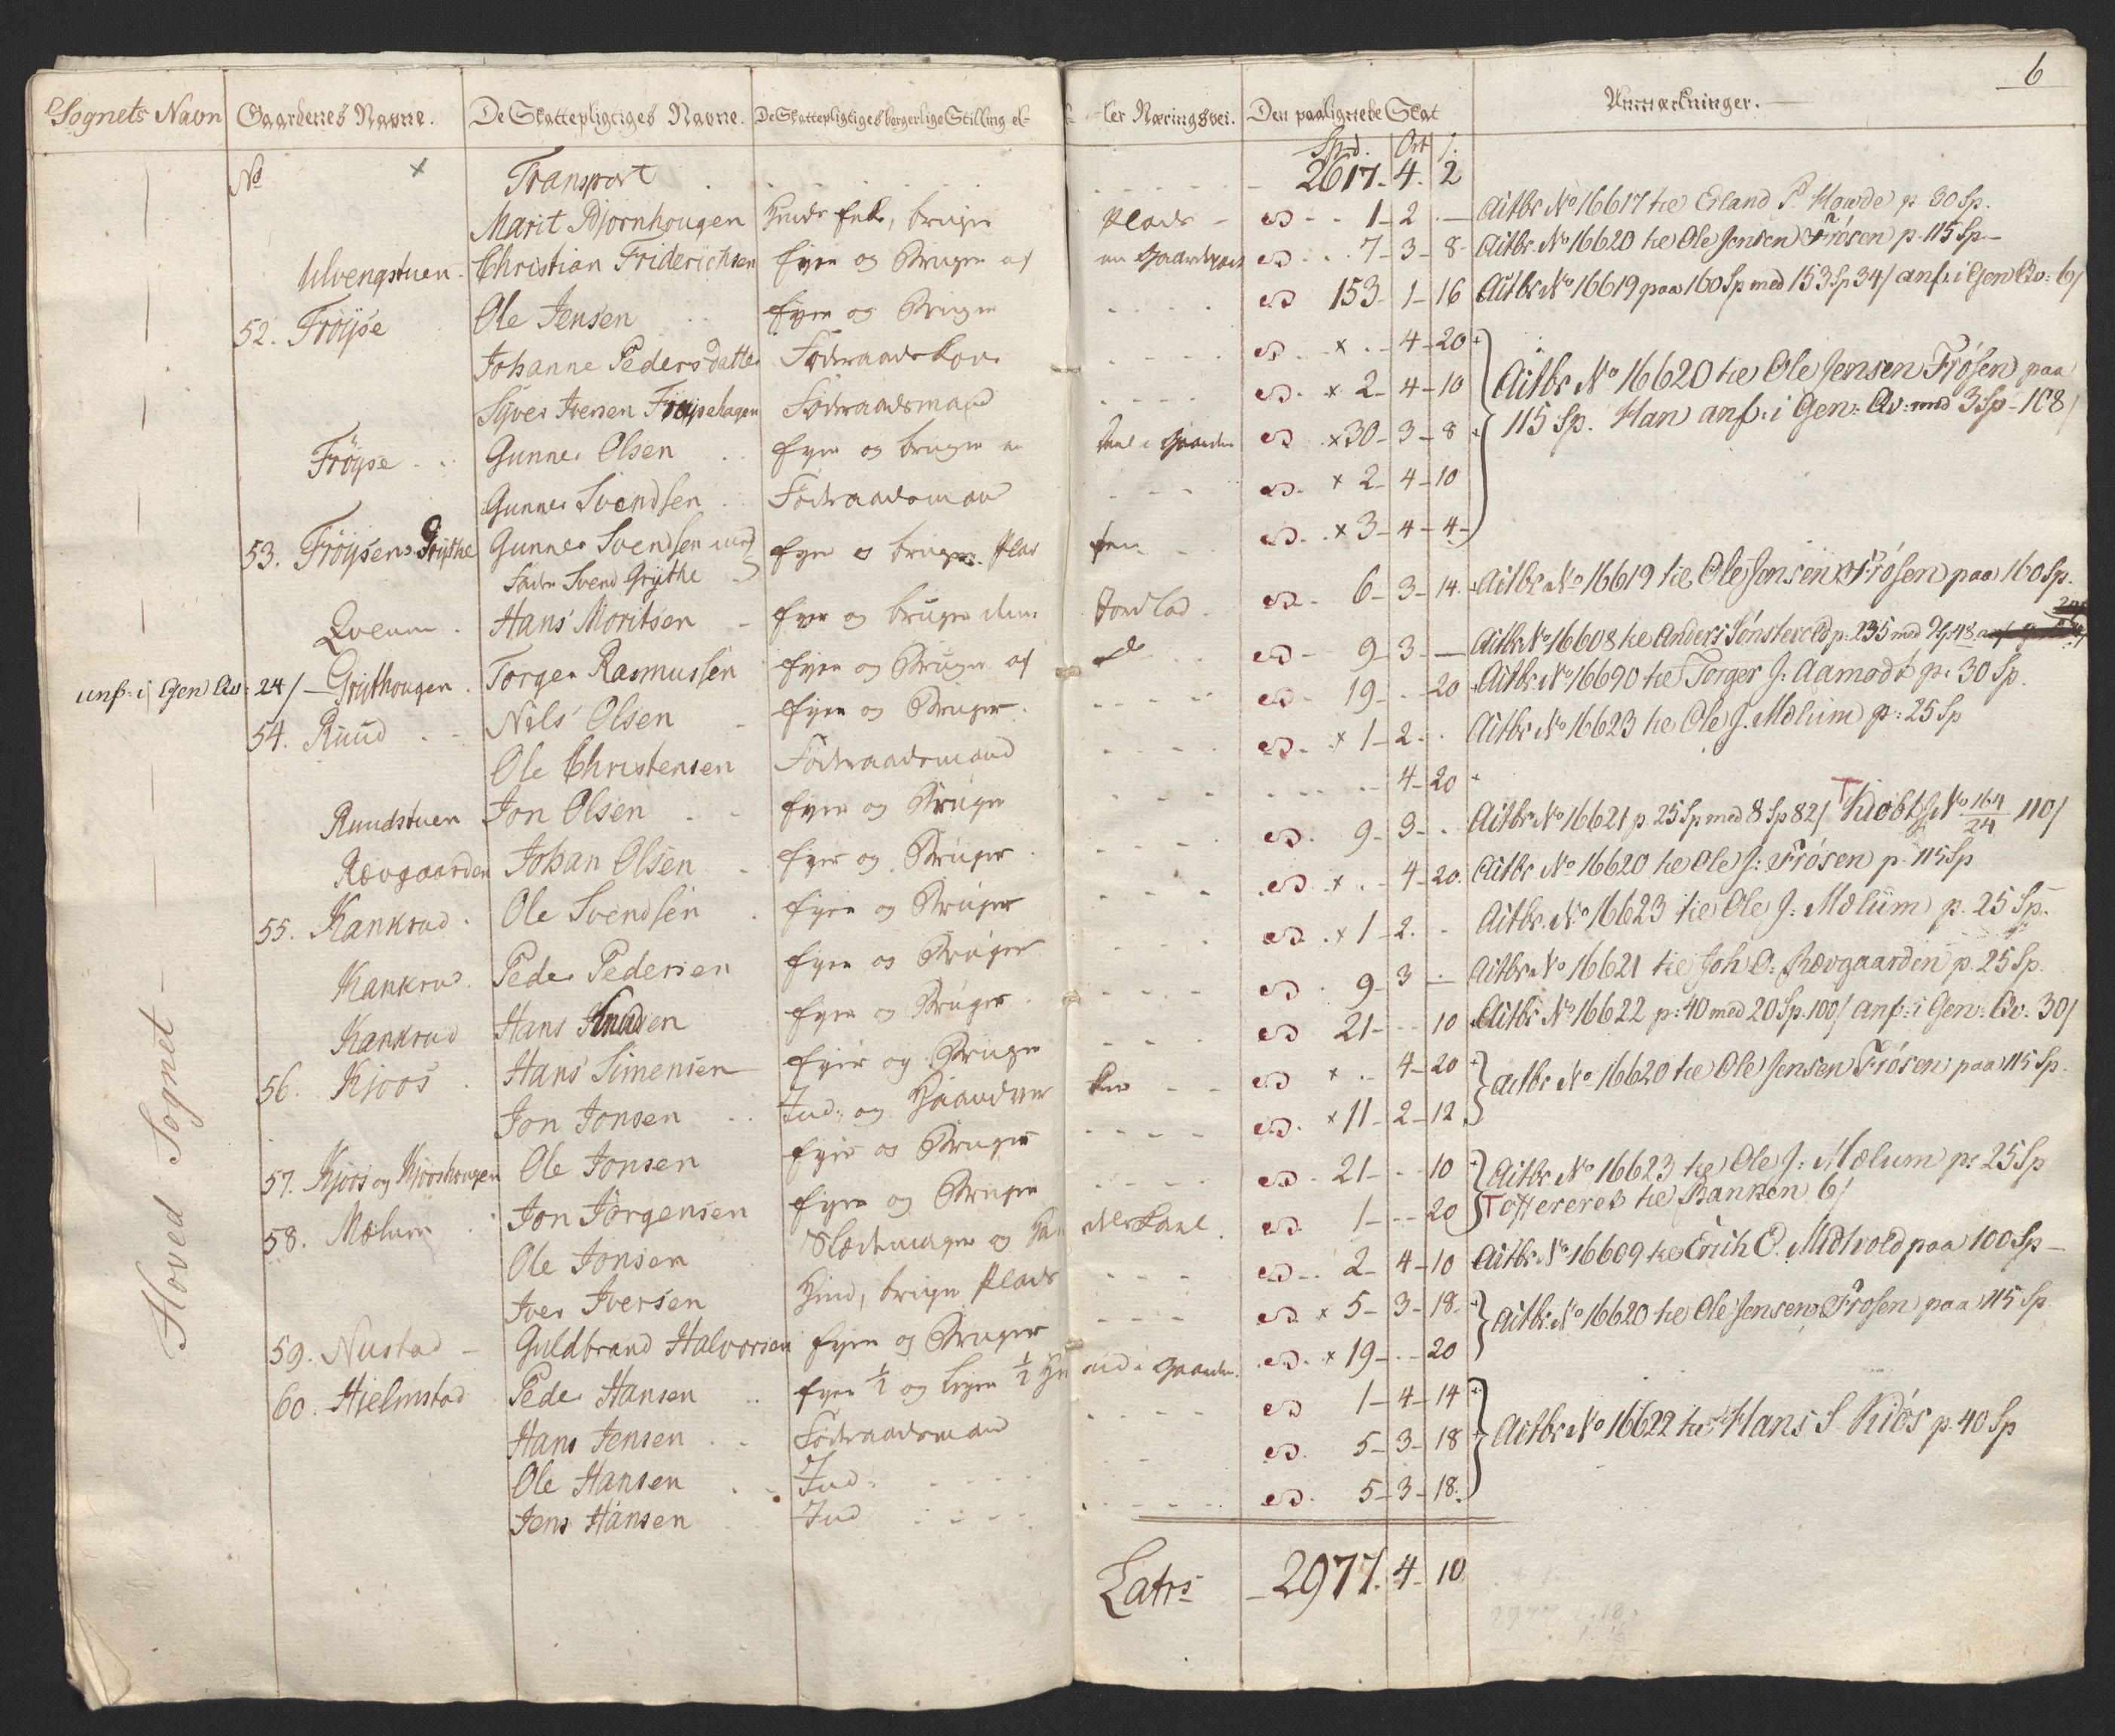 6
Sognets Navn Gaardenes Navne. De Skattepligtiges Navne. De Skattepligtiges borgerlige Stilling el- -ler Næringsvei. Den paalignede Skat Anmærkninger.
No Transport Spd. Ort /:
2617. 4. 2
Marit Bjornhougen bruger Plads 1 - 2 Actbr No 16617 til Erland P. Howde p 30 Sp.
Ulvengstuen Christian Friderichsen Eyer og Bruger af en 7 - 3 - 8 Actbr. No 16620 til Ole Jensen Frøsen p. 115 Sp
52. Frøyse Ole Jensen Eyer og Bruger 153 - 1 - 16 Actbr No 16619 paa 160 Sp med 153 Sp 34/ anf: i Gen Qv: 6/
Johanne Pedersdatter Føderaadskone x 4 - 20
Syver Iversen Frøysehagen Føderaadsmand x 2 - 4 - 10 Actbr No 16620 til Ole Jensen Frøsen paa
Frøyse Gunner Olsen Eyer og bruger en Deel i Gaarden x 30 - 3 - 8 115 Sp. Han anf: i Gen: Qv: med 3 Sp - 108/
Gunner Svendsen Føderaadsman x 2 - 4 - 10
53. Frøysens Grythe Gunner Svendsen med Eyer o bruger Plad sen x 3 - 4 - 4
Fader Svend Grythe
Qveum Hans Moritsen Eyer og bruger Jordlod 6 - 3 - 14 Actbr No 16619 til Ole Jensen Frøsen paa 160 Sp.
anf: i Gen Qv: 24/ Griithougen Torger Rasmussen Eyer og Bruger af 9 - 3 - Actbr No 16608 til Anders Sønstevold p: 235 med
54. Ruud Nils Olsen Eyer og Bruger 19 - 20 Actbr. No 16690 til Torger J. Aamodt p: 30 Sp.
Ole Christensen Føderaadsmand x 1 - 2 Actbr No 16623 til Ole J. Mælum p: 25 Sp
Ruudstuen Jon Olsen Eyer og Bruger 4 - 20
Rævgaarden Johan Olsen Eyer og Bruger 9 - 3 Actbr No 16621 p. 25 Sp med 8 Sp 82/ No 164/24 110/
55. Kankrud Ole Svendsen Eyer og Bruger x 4 - 20 Actbr No 16620 til Ole J: Frøsen p. 115 Sp
Kankrud Peder Pedersen Eyer og Bruger x 1 - 2 Actbr. No 16623 til Ole J: Mælum p. 25 Sp.
Kankrud Hans Knudsen Eyer og Bruger 9 - 3 Actbr No 16621 til Joh O: Rævgaarden p. 25 Sp.
56. Kjoos Hans Simensen Eyer og Bruger 21 - 10 Actbr No 16622 p: 40 med 20 Sp. 100/ anf: i Gen: Qv: 30/
Jon Jonsen Ind: og Haandvær ker x 4 - 20 Actbr No 16620 til Ole Jensen Frøsen paa 115 Sp.
57. Kjoos og Kjooshougen Ole Jonsen Eyer og Bruger x 11 - 2 - 12
58. Mælum Jon Jörgensen Eyer og Bruger 21 - 10 Actbr No 16623 til Ole J: Mælum p: 25 Sp
Ole Jonsen og 1 - 20 Tofferered til Banken 6/
Iver Iversen bruger Plads 2 - 4 - 10 Actbr. No 16609 til Erich O. Midtvold paa 100 Sp
59. Nustad Guldbrand Halvorsen Eyer og Bruger x 5 - 3 - 18 Actbr No 16620 til Ole Jensen Frosen paa 115 Sp
60. Hielmstad Peder Hansen Eyer 1/2 og 1/2 i Gaarden x 19 - 20
Hans Jensen Føderaadsmand 1 - 4 - 14
Ole Hansen Ind: 5 - 3 - 18 Actbr No 16622 til Hans S. Kiøs p. 40 Sp
Jens Hansen Ind 5 - 3 - 18
Hoved Sognet
Latrs 2977. 4 - 10